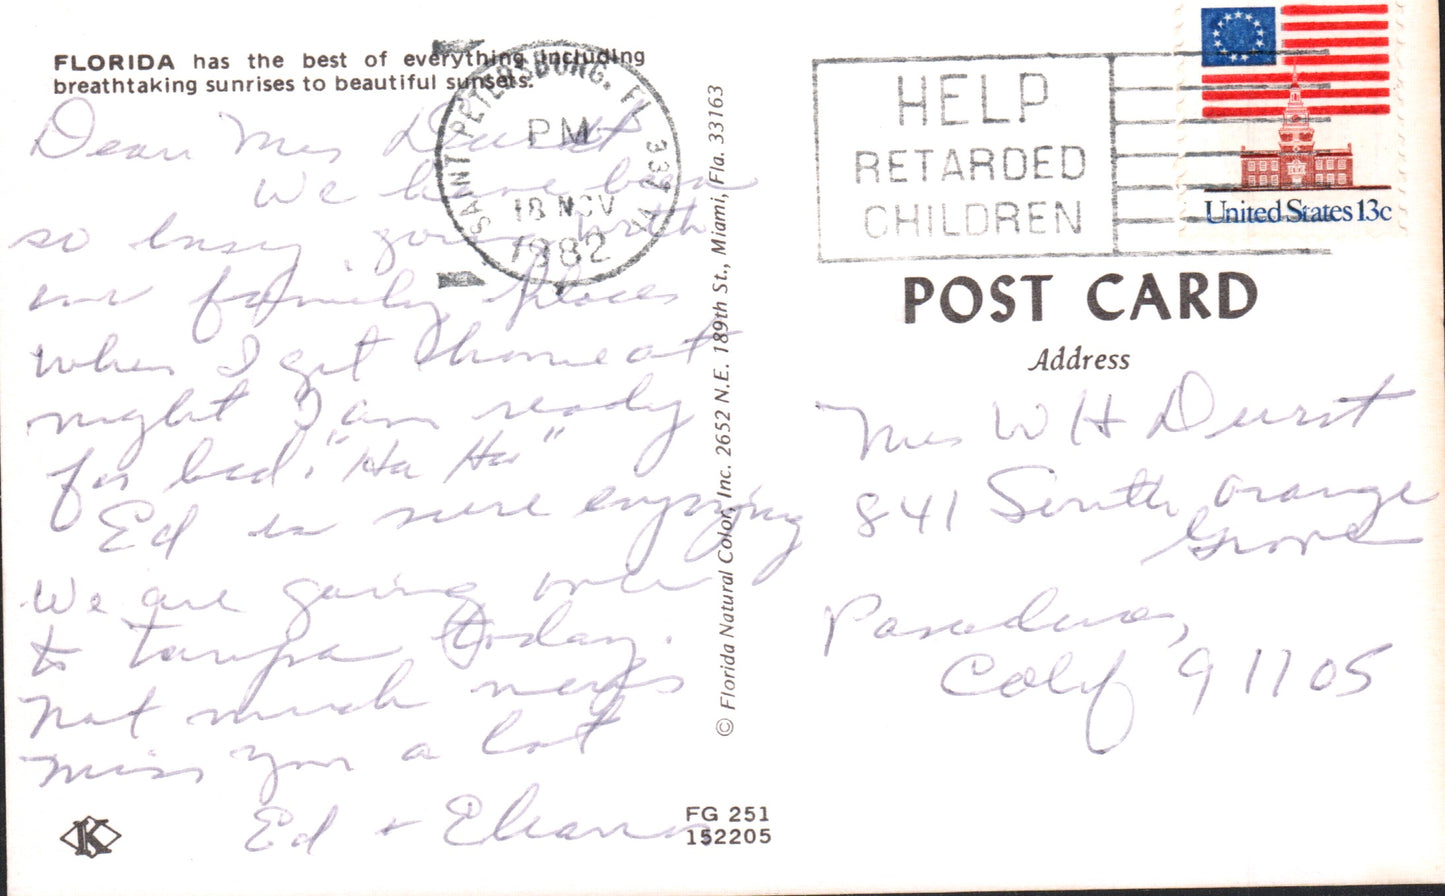 FLORIDA has the best of everything including
breathtaking sunrises to beautiful sunsets.
Dear Mrs Durst
We have been
so busy going with
our family places
when I get home at
night I am ready
for bed. "Ha Ha"
Ed is sure enjoying
We are going over
to Tampa today.
Not much news
miss you a lot
Ed + Eleanor
K
FG 251
152205
© Florida Natural Color, Inc. 2652 N.E. 189th St., Miami, Fla. 33163
SAINT PETERSBURG, FL 337
PM
18 NOV
1982
HELP
RETARDED
CHILDREN
United States 13c
POST CARD
Address
Mrs W H Durst
841 South Orange
Grove
Pasadena,
Calif 91105